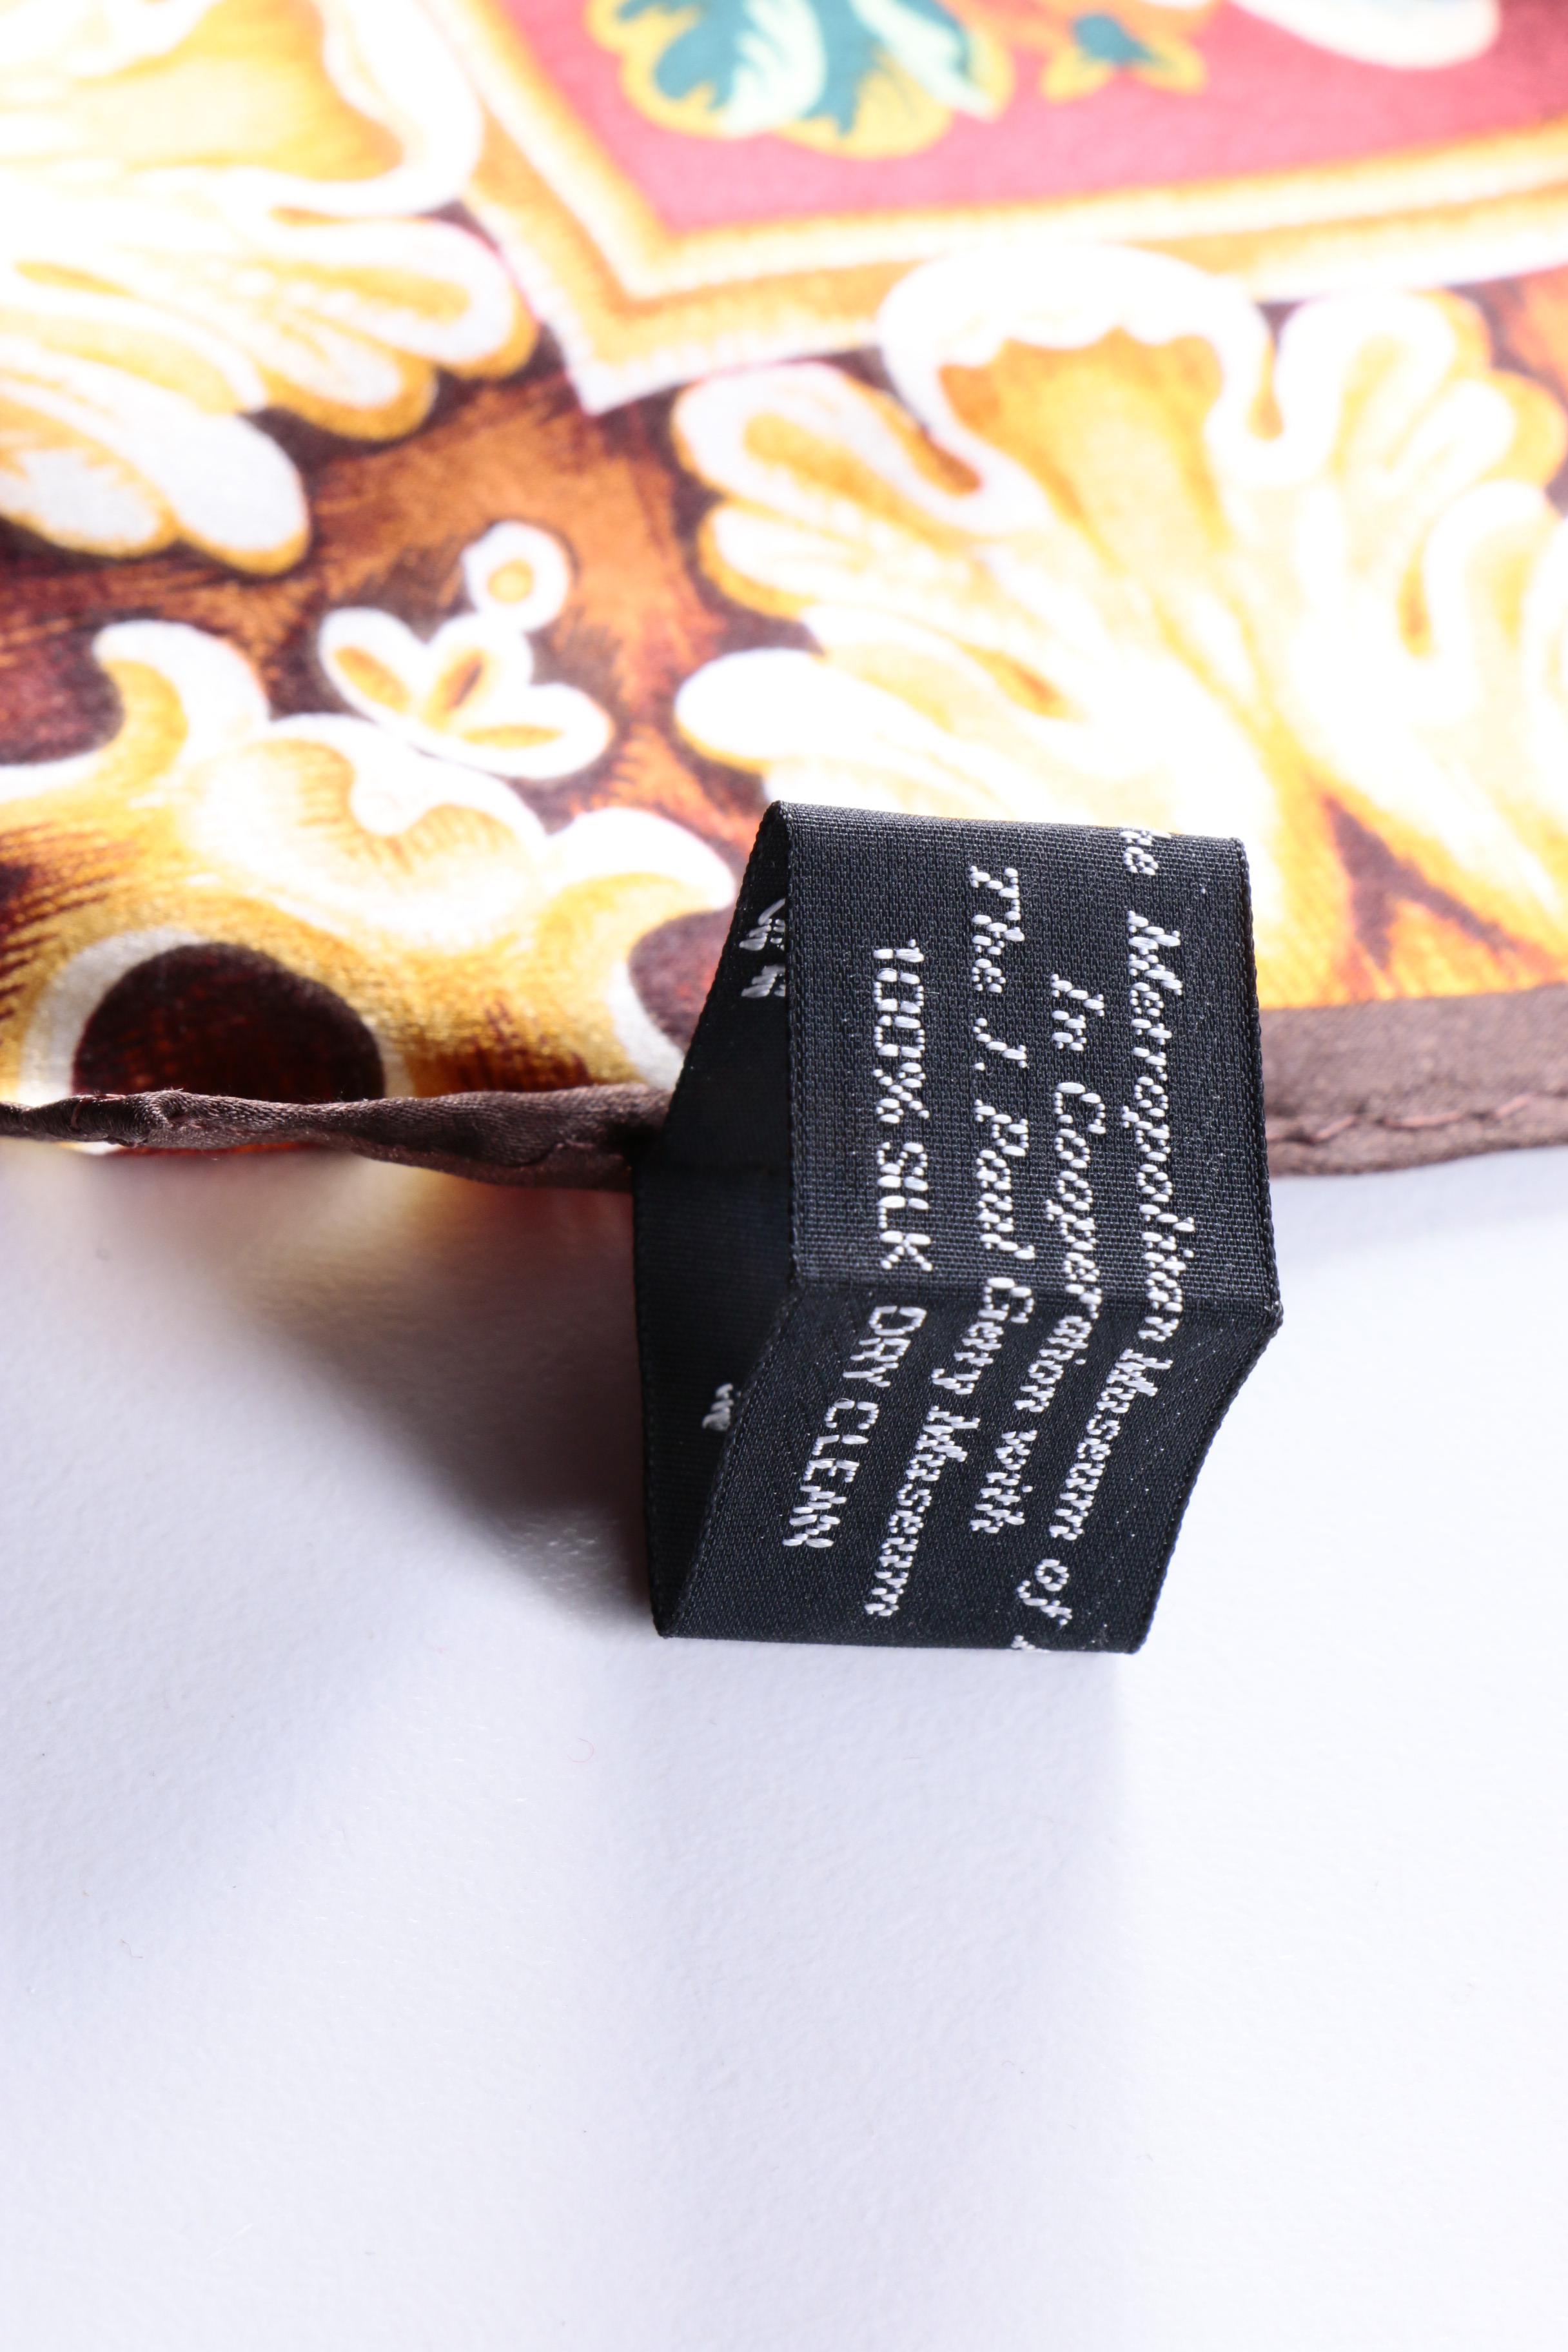 Metropolitan Museum of
In Cooperation with
The J. Paul Getty Museum
100% SILK DRY CLEAN